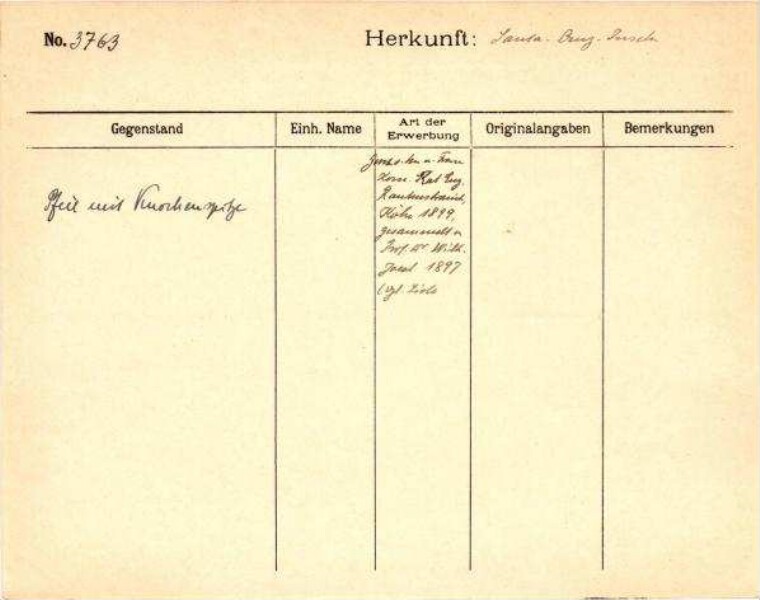 No. 3763
Herkunft: Santa-Cruz-Inseln
Gegenstand
Einh. Name
Art der
Erwerbung
Originalangaben
Bemerkungen
Pfeil mit Knochenspitze
Gesch. v. Hrn u. Frau
Kom. Rat Eug.
Rautenstrauch,
Köln 1899,
gesammelt v.
Prof. Dr. Wilh.
Joest 1897
(vgl. Liste